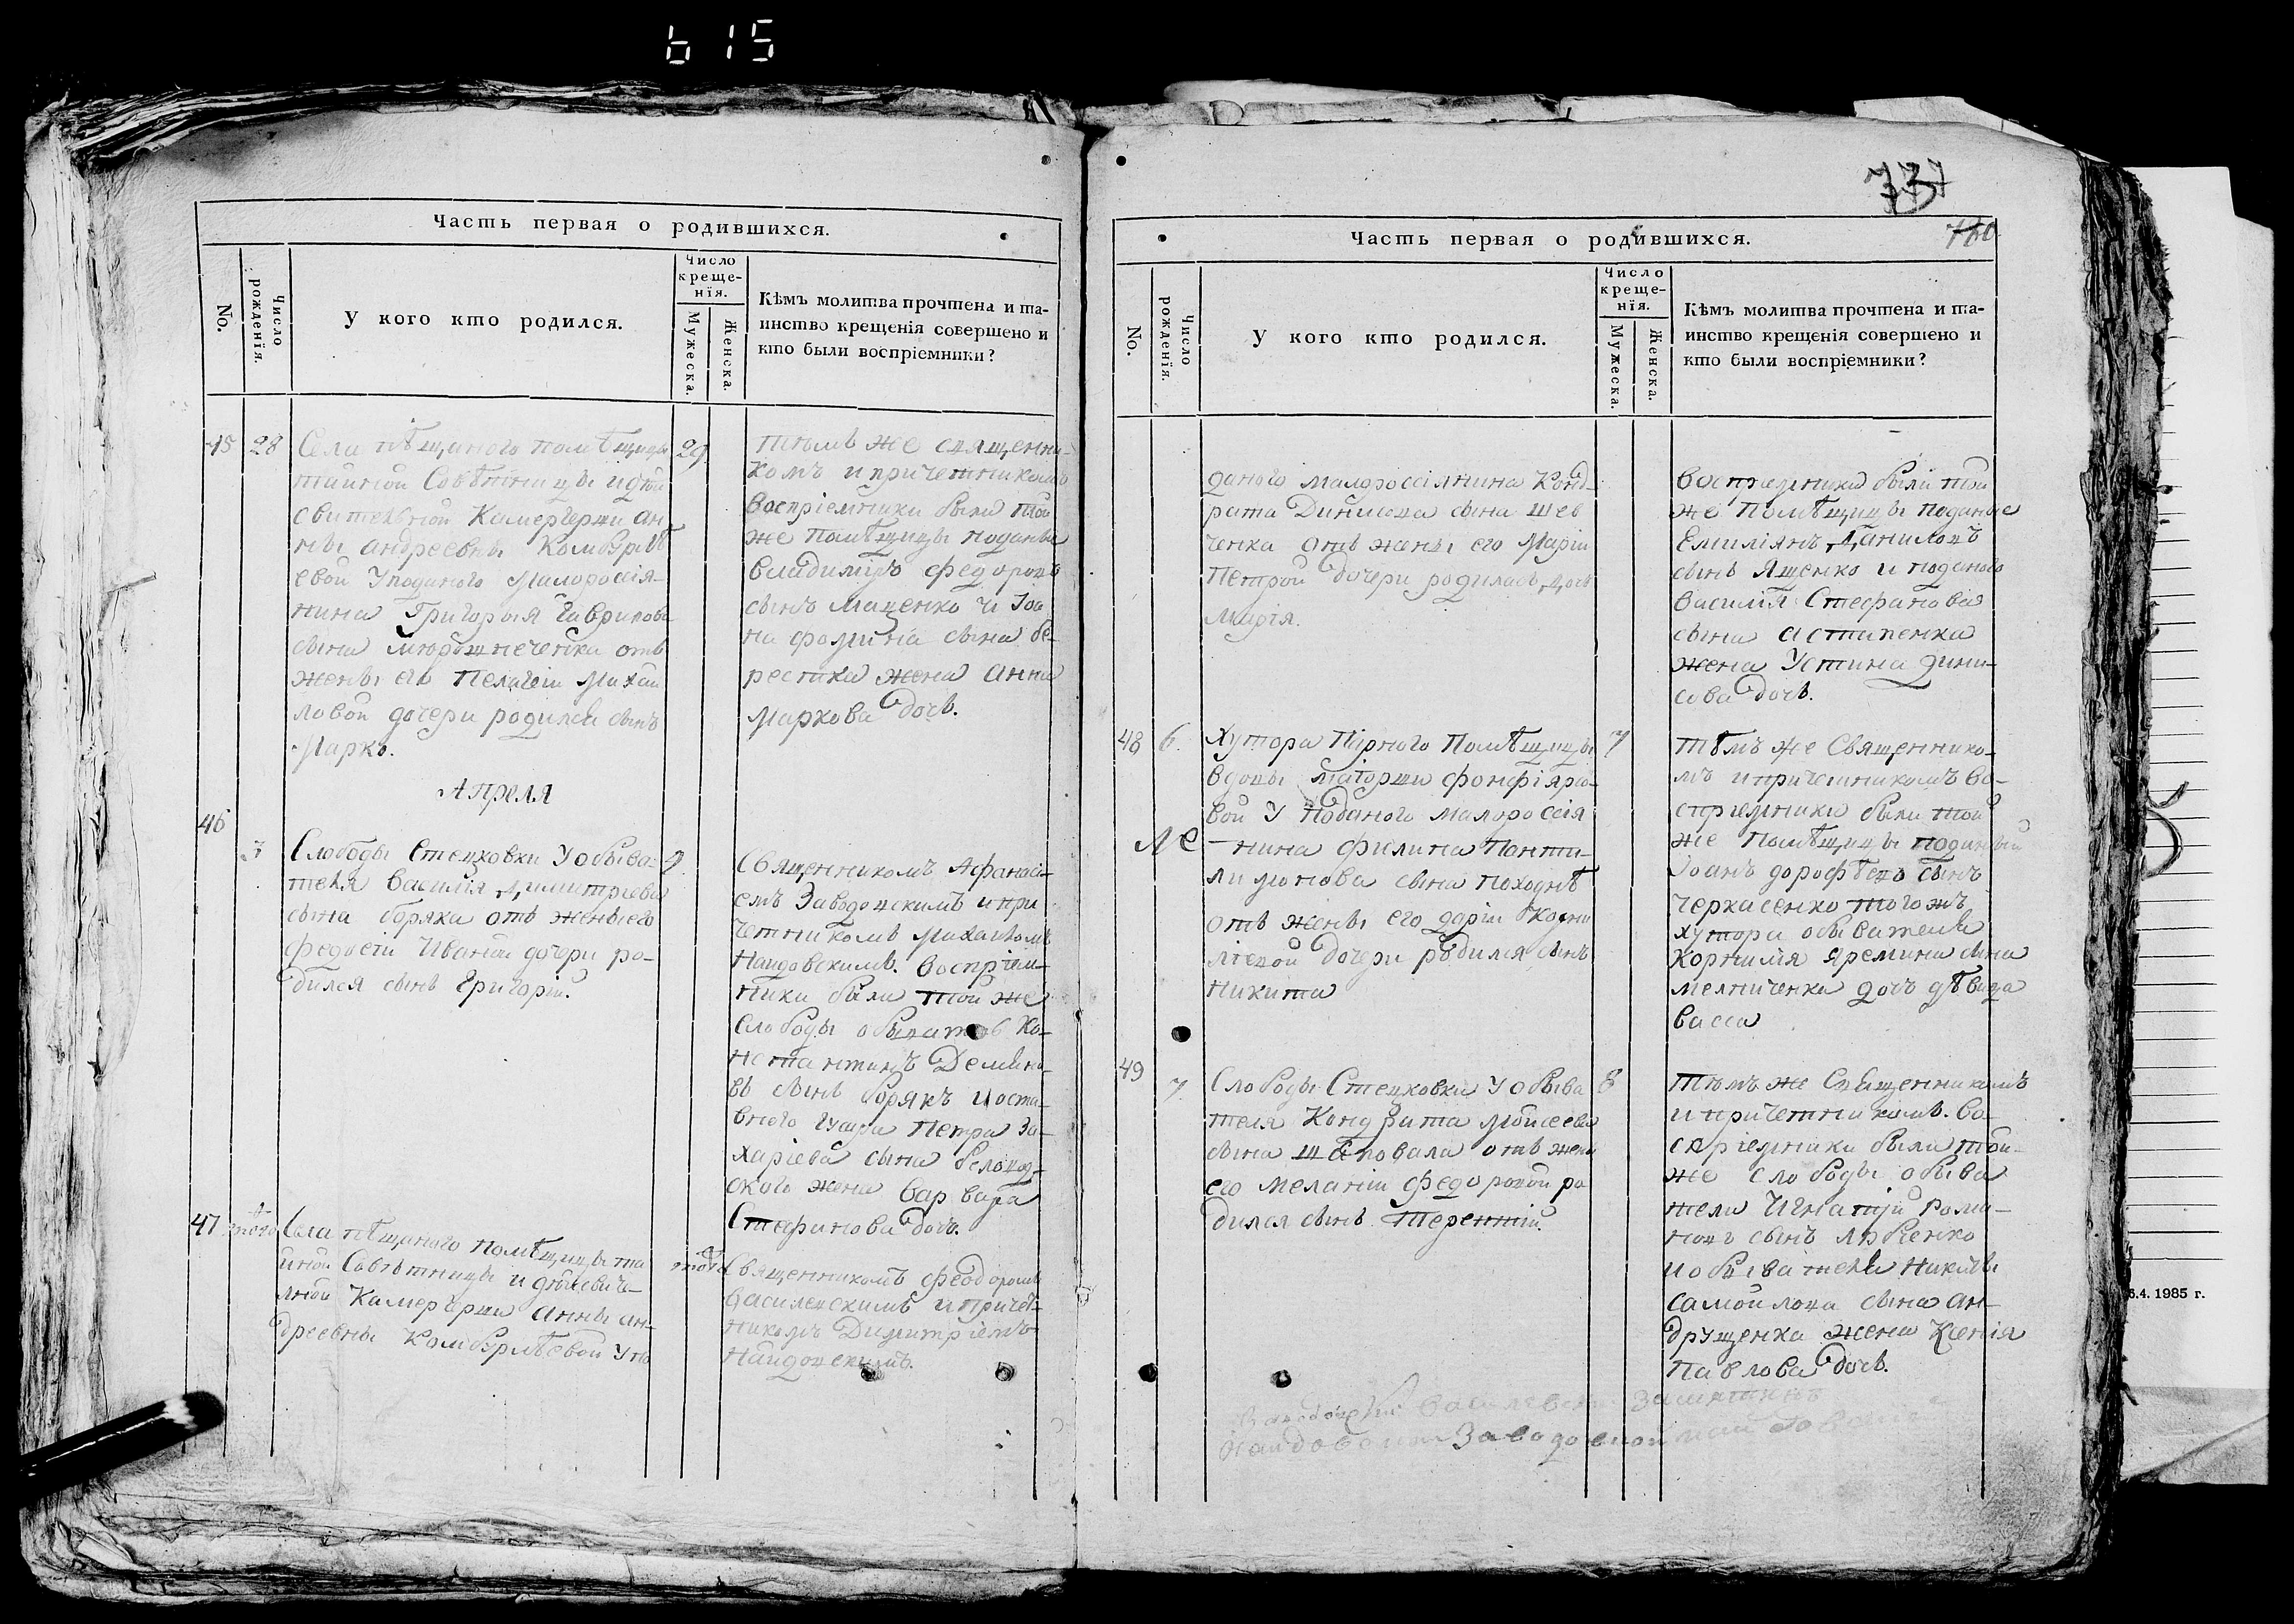 615
Часть первая о родившихся.
No.
Число рожденїя.
У кого кто родился.
Число креще-нїя.
Мужеска.
Женска.
Кѣмъ молитва прочтена и та-
инство крещенїя совершено и
кто были воспрїемники?
45 28 Села пѣщаного помѣщицы 29
тайной Совѣтницы и дѣй
свителной Камергерши Ан
ны Андреевны
евой У поданого Малороссія-
нина Григорія Гаврилова
сына отъ
жены его Пелагеи Михаи
ловой дочери родился сынъ
Марко.
тѣмъ же священни-
комъ и причетникомъ
воспріемники были той
же помѣщицы поданые
Владимиръ Федоровъ
сынъ Маценко и Іоа
на Фомина сына Бе-
рестка жена Анна
Маркова дочь.
Апреля
46
3 Слободы Стецковки У обыва-
теля Василія Димитріева
сына Боряка отъ жены его
Федосіи Ивановой дочери ро-
дился сынъ Григорій.
Священникомъ Афанасі-
емъ Заводовскимъ и при
четникомъ Михаиломъ
Найдовскимъ. Воспріем-
ники были той же
слободы обыватель Ко-
нстантинъ Демяно-
въ сынъ Борякъ и отста-
вного гусара Петра За-
харіева сына
жена Варвара
Стефанова дочь.
47 того Села пѣщаного помѣщицы та
йной Совѣтницы и дѣйстви-
лной Камергерши Анны Ан-
дреевны У по
того
Священникомъ Феодоромъ
Василевскимъ и причет-
никомъ Димитріемъ
Найдовскимъ.
737
760
Часть первая о родившихся.
No.
Число рожденїя.
У кого кто родился.
Число креще-нїя.
Мужеска.
Женска.
Кѣмъ молитва прочтена и та-
инство крещенїя совершено и
кто были воспрїемники?
даного малороссіянина Конд-
рата Динисова сына Шев
ченка отъ жены его Маріи
Петровой дочери родилась дочь
Марія.
Воспріемники были той
же Помѣщицы поданые
Емиліянъ Даниловъ
сынъ Ященко и поданого
Василія Стефанова
сына
жена Устина Дини-
сова дочь.
48 6. Хутора Парного Помѣщицы 7
вдовы маіорши
вой У поданого малороссія
нина Филипа Панти-
лимонова сына
отъ жены его Дарїи Корни
ліевой дочери родился сынъ
Никита
тѣмъ же Священнико-
мъ и причетникомъ во-
спріемники были той
же помѣщицы поданый
Іоанъ Дорофѣевъ сынъ
Черкасенко того жъ
хутора обывателя
Корнилія Яремина сына
Мелниченка дочь дѣвица
Васса
49
7. Слободы Стецковки У обыва 8
теля Кондрата Мойсеева
сына Шаповала отъ жены
его Меланіи Федоровой ро
дился сынъ Терентій.
тѣмъ же Священникомъ
и причетникомъ. Во-
спріемники были той-
же слободы обыва
тели Игнатій Рома-
новъ сынъ
и обывателя Никиты
Самойлова сына Ан-
друщенка жена Ксенія
Павлова дочь.
6.4. 1985 г.